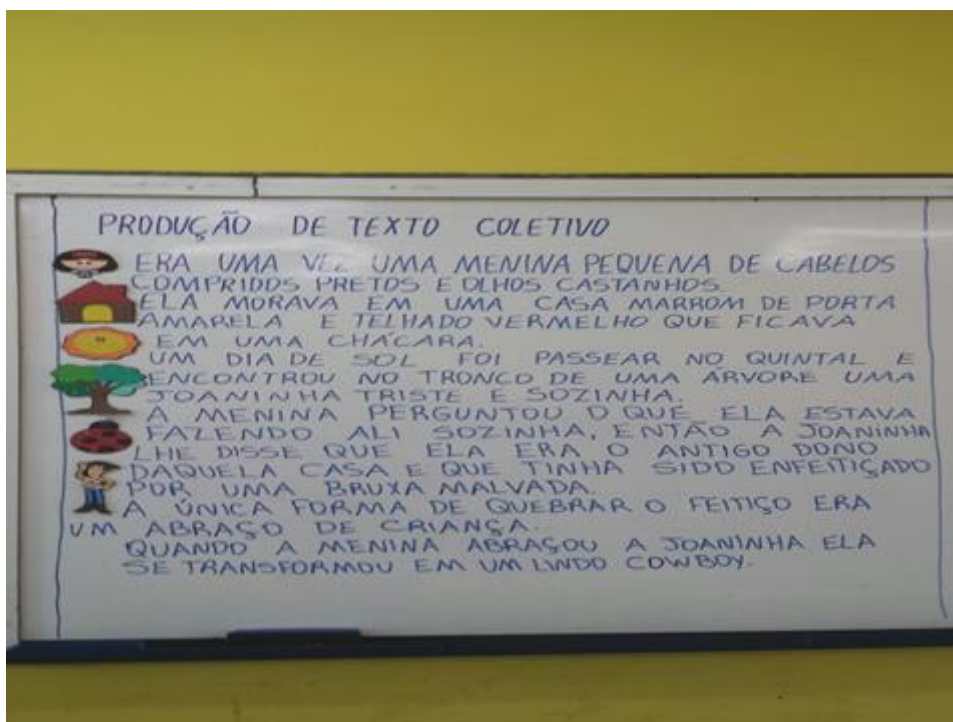 PRODUÇÃO DE TEXTO COLETIVO
ERA UMA VEZ UMA MENINA PEQUENA DE CABELOS
COMPRIDOS PRETOS E OLHOS CASTANHOS.
ELA MORAVA EM UMA CASA MARROM DE PORTA
AMARELA E TELHADO VERMELHO QUE FICAVA
EM UMA CHÁCARA.
UM DIA DE SOL FOI PASSEAR NO QUINTAL E
ENCONTROU NO TRONCO DE UMA ÁRVORE UMA
JOANINHA TRISTE E SOZINHA.
A MENINA PERGUNTOU O QUE ELA ESTAVA
FAZENDO ALI SOZINHA, ENTÃO A JOANINHA
LHE DISSE QUE ELA ERA O ANTIGO DONO
DAQUELA CASA E QUE TINHA SIDO ENFEITIÇADO
POR UMA BRUXA MALVADA.
A ÚNICA FORMA DE QUEBRAR O FEITIÇO ERA
UM ABRAÇO DE CRIANÇA.
QUANDO A MENINA ABRAÇOU A JOANINHA ELA
SE TRANSFORMOU EM UM LINDO COWBOY.